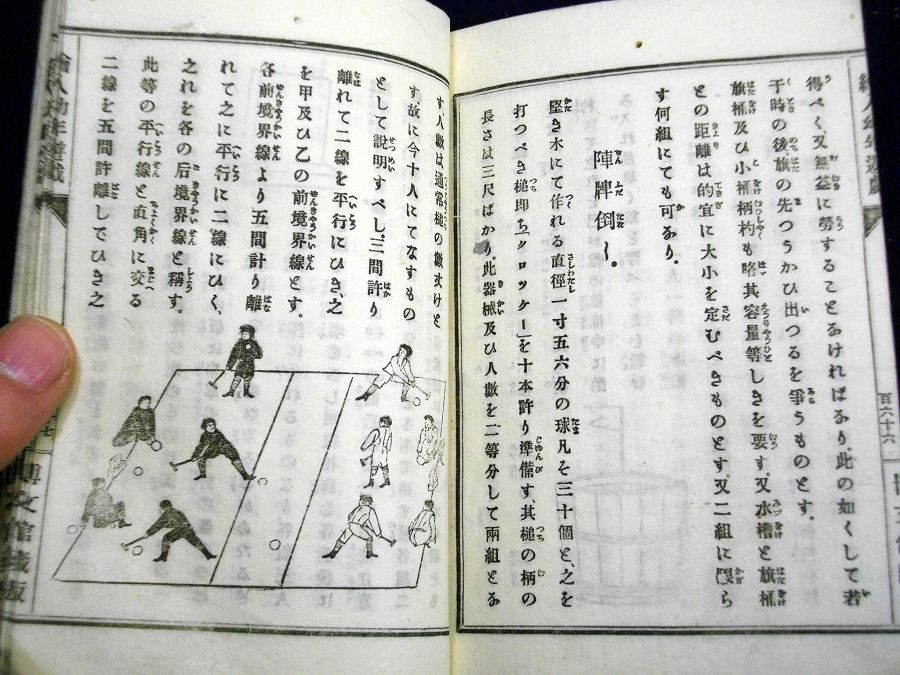 得べく、又無益に勞することなければなり、此の如くして若
干時の後旗の先つうかひ出つるを爭うものとす。
旗桶及ひ小桶柄杓も略其容量等しきを要す。又水槽と旗桶
との距離は的宜に大小を定むべきものとす。又二組に限ら
す何組にても可なり。
陣牌倒し。
堅き木にて作れる直徑一寸五六分の球凡そ三十個と、之を
打つべき槌即ち「クロッケー」を十本許り準備す、其槌の柄の
長さは三尺ばかり。此器械及ひ人數を二等分して兩組とな
百六十六
す人數は通常槌の數丈けと
す。故に今十人にてなすもの
として說明すべし。三間許り
離れて二線を平行にひき、之
を甲及ひ乙の前境界線とす。
各前境界線より五間計り離
れて之に平行に二線にひく、
之れを各の后境界線と稱す。
此等の平行線と直角に交る
二線を五間許離してひき之
博文館藏版